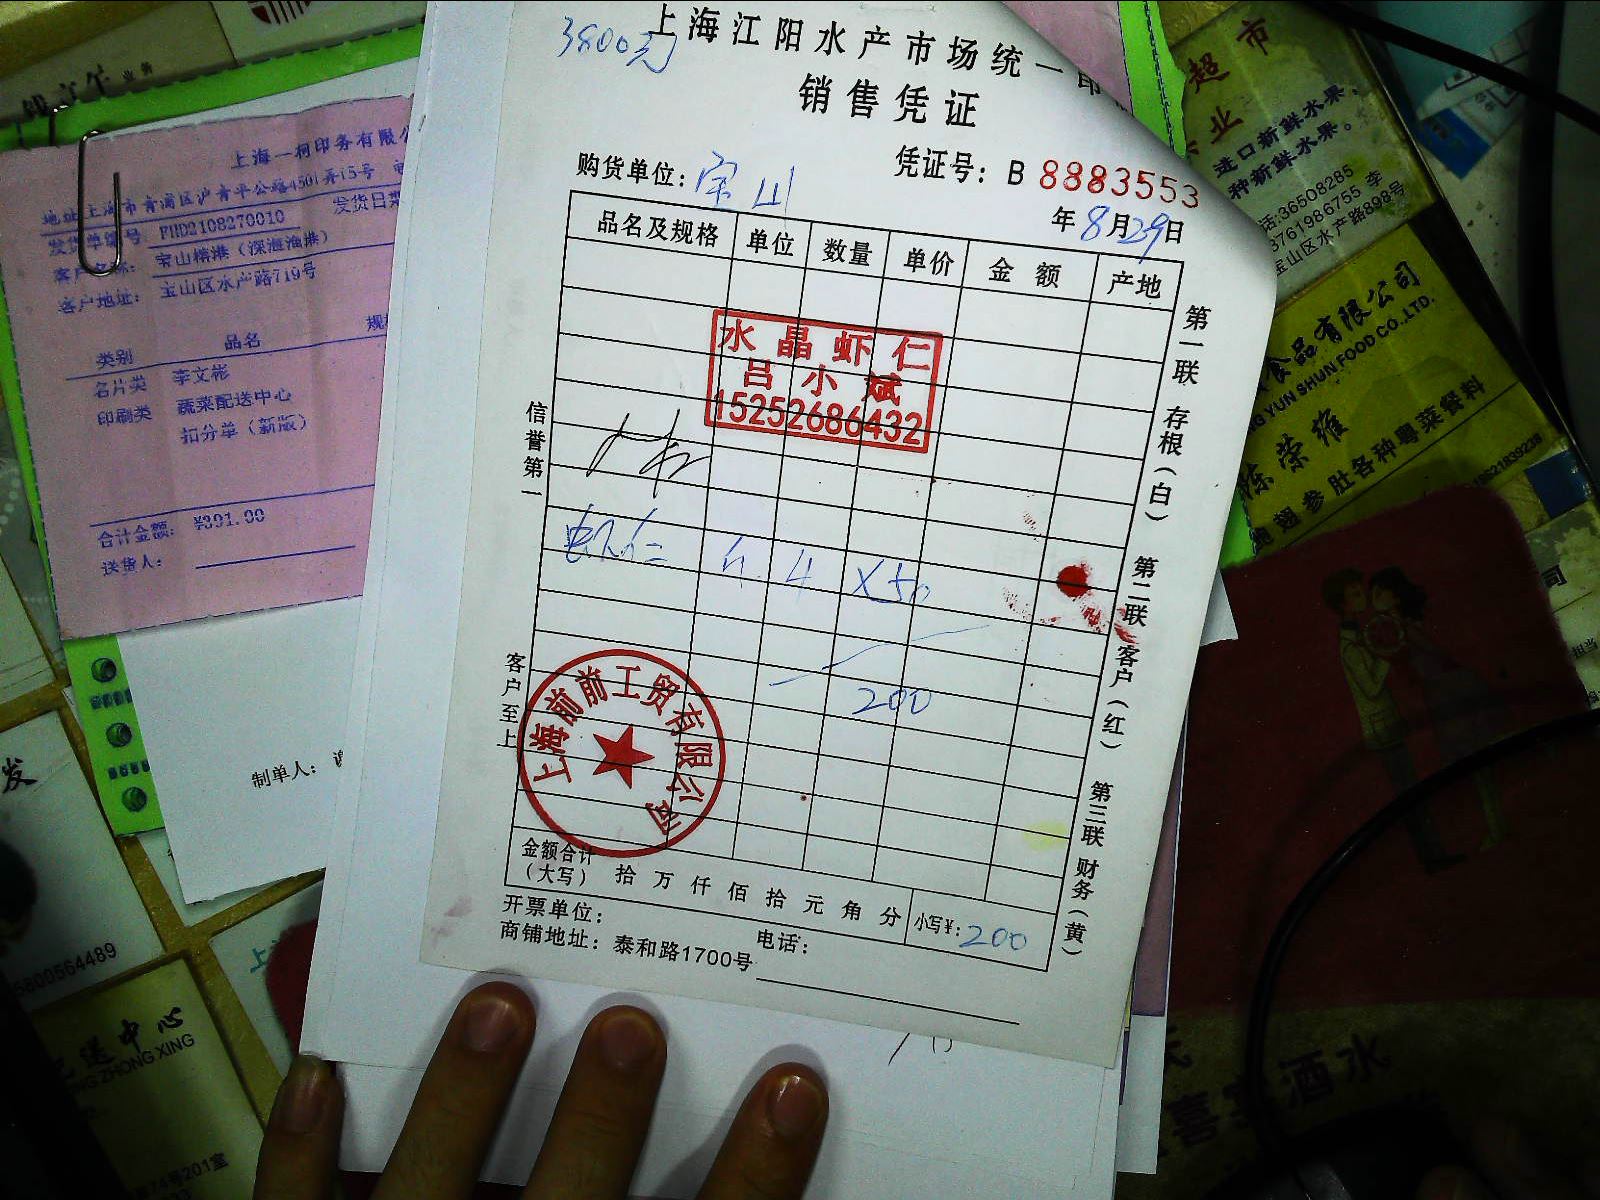 3800元
上海江阳水产市场统一印
销售凭证
购货单位：宝山
凭证号：B 8883553
年8月29日
品名及规格 单位 数量 单价 金额 产地
水晶虾仁
吕小斌
15252686432
4 X50
200
信誉第一
客户至上
上海前前工贸有限公司
第一联 存根（白） 第二联 客户（红） 第三联 财务（黄）
金额合计
（大写） 拾 万 仟 佰 拾 元 角 分 小写¥：200
开票单位：
商铺地址：泰和路1700号 电话：
上海一柯印务有限公
地址上海市青浦区沪青平公路4501弄15号
发货单编号 FHD2108270010 发货日期
客户名称： 宝山横港（深海渔港）
客户地址： 宝山区水产路719号
类别 品名 规格
名片类 李文彬
印刷类 蔬菜配送中心
扣分单（新版）
合计金额： ¥391.00
送货人：
制单人：
业务
超市
业
进口新鲜水果，
种新鲜水果。
话:36508285
3761986755 李
宝山区水产路898号
食品有限公司
YUN SHUN FOOD CO.,LTD.
陈荣雍
鲍翅参肚各种粤菜餐料
司
发
5800564489
送中心
ZHONG XING
74号201室
喜宴酒水